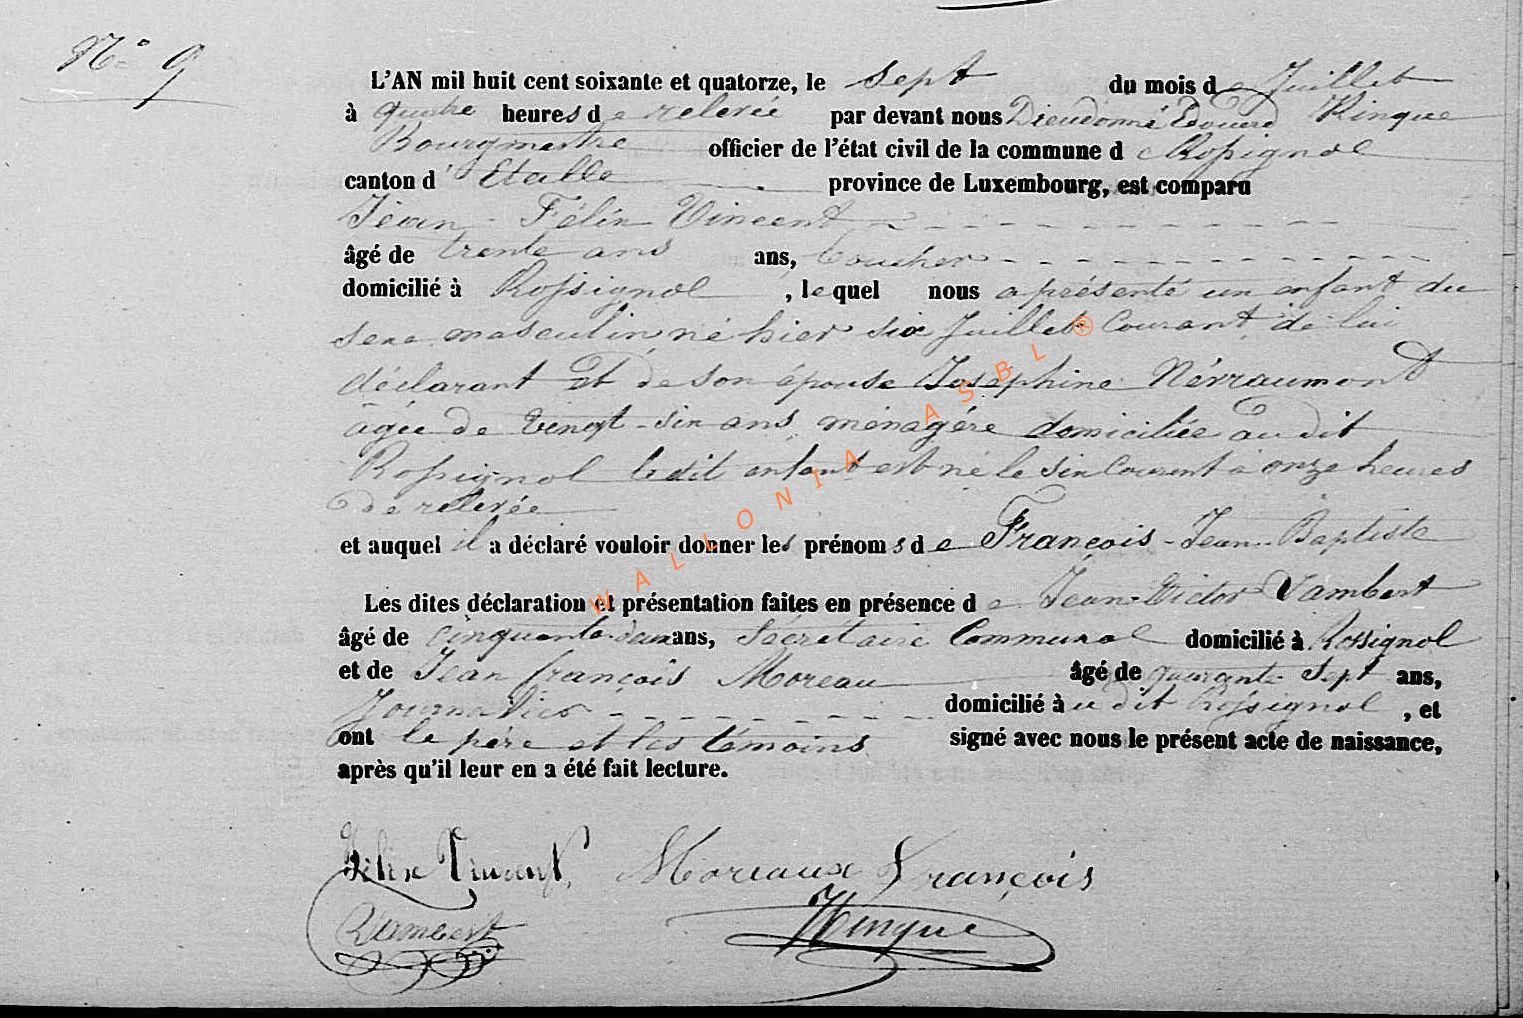 N° 9
L'AN mil huit cent soixante et quatorze, le sept du mois de Juillet
à quatre heures de relevée par devant nous Dieudonné Edouard Hinque
Bourgmestre officier de l'état civil de la commune de Rossignol
canton d'Etalle province de Luxembourg, est comparu
Jean-Félix Vincent
âgé de trente ans ans, boucher
domicilié à Rossignol, lequel nous a présenté un enfant du
sexe masculin né hier six Juillet Courant de lui
déclarant et de son épouse Joséphine Névraumont
âgée de vingt-six ans ménagère domiciliée au dit
Rossignol ledit enfant est né le six Courant à onze heures
de relevée
et auquel il a déclaré vouloir donner les prénoms de François-Jean-Baptiste
Les dites déclaration et présentation faites en présence de Jean-Victor Lambert
âgé de cinquante-deux ans, Secrétaire Communal domicilié à Rossignol
et de Jean françois Moreau âgé de quarante-Sept ans,
Journalier domicilié au dit Rossignol, et
ont le père et les témoins signé avec nous le présent acte de naissance,
après qu'il leur en a été fait lecture.
Félix Vincent, Moreaux François
Lambert Hinque
WALLONIA ASBL ®